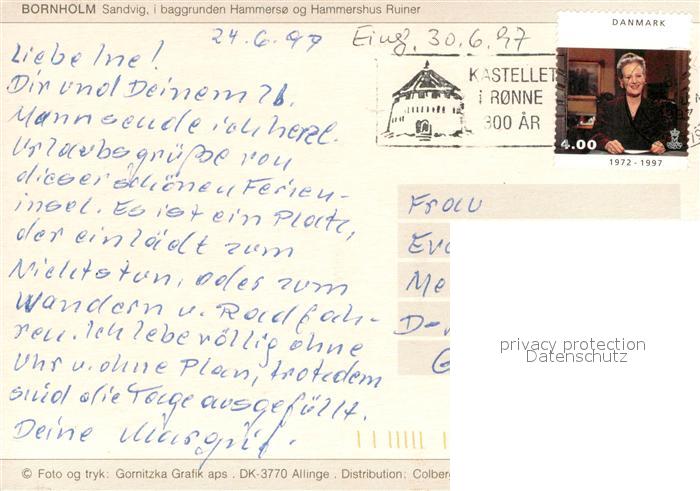 BORNHOLM Sandvig, i baggrunden Hammersø og Hammershus Ruiner
24.6.97
Eing. 30.6.97
Liebe Ine!
Dir und Deinem lb.
Mann sende ich herzl.
Urlaubsgrüße von
dieser schönen Ferien-
insel. Es ist ein Platz,
der einlädt zum
Nichtstun, oder zum
Wandern u. Radfah-
ren. Ich lebe völlig ohne
Uhr u. ohne Plan, trotzdem
sind die Tage ausgefüllt.
Deine Margrit.
KASTELLET
i RØNNE
300 ÅR
DANMARK
4.00
1972 - 1997
Frau
privacy protection
Datenschutz
© Foto og tryk: Gornitzka Grafik aps . DK-3770 Allinge . Distribution: Colberg